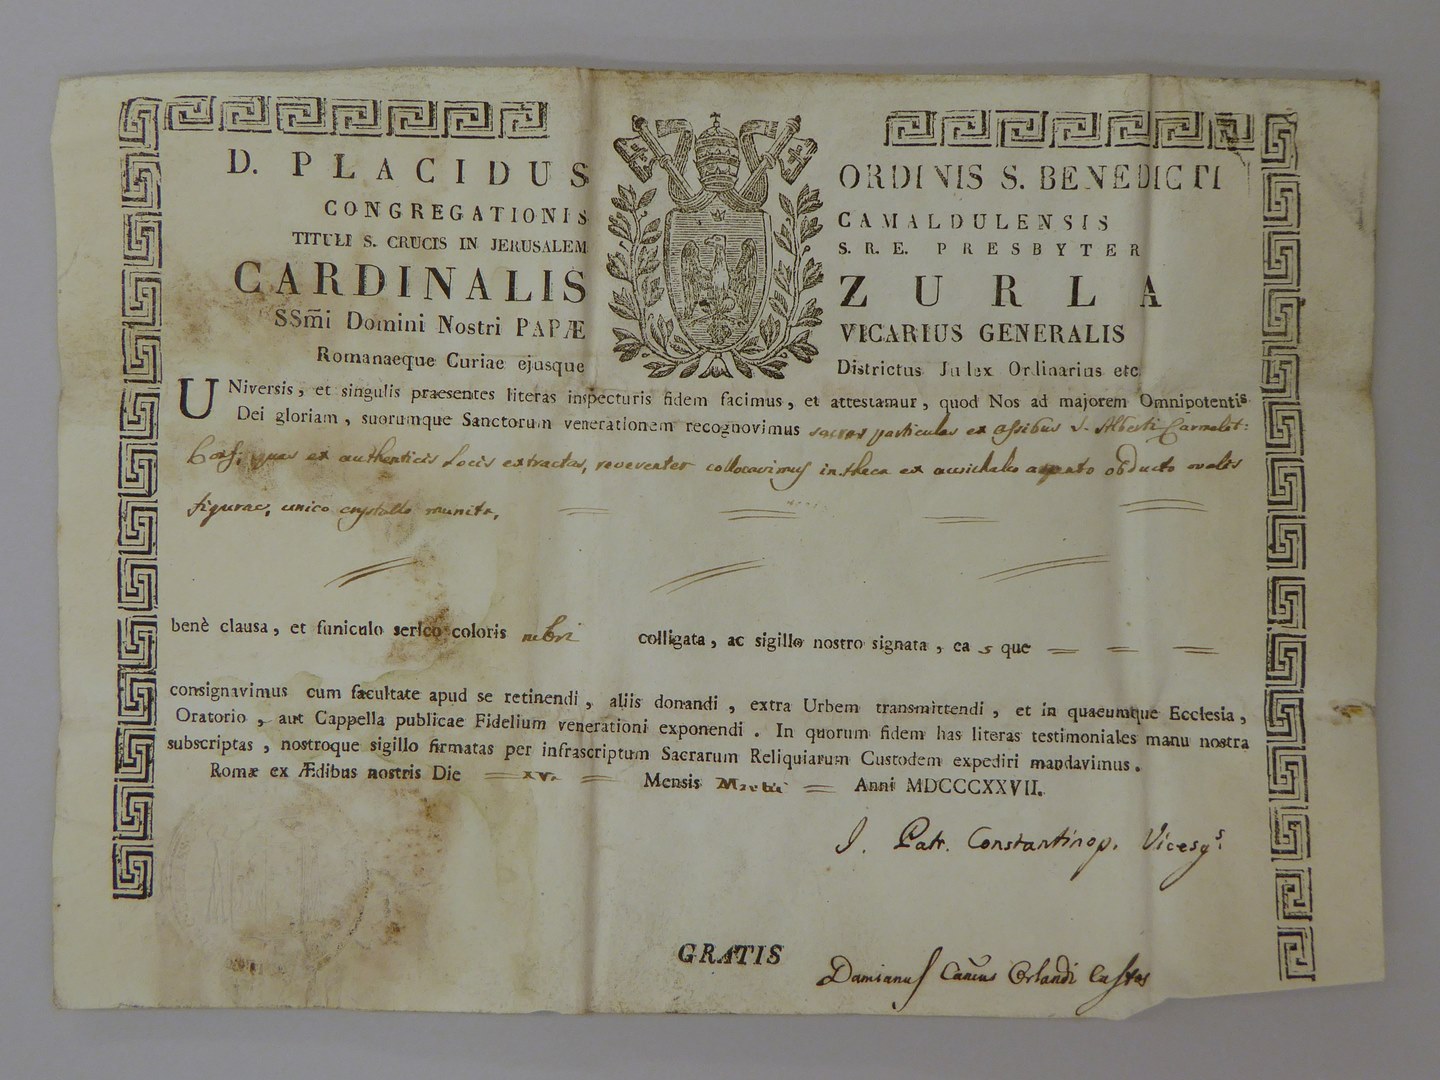 D. PLACIDUS ORDINIS S. BENEDICTI
CONGREGATIONIS CAMALDULENSIS
TITULI S. CRUCIS IN JERUSALEM S. R. E. PRESBYTER
CARDINALIS ZURLA
SSm̃i Domini Nostri PAPÆ VICARIUS GENERALIS
Romanaeque Curiae ejusque Districtus Judex Ordinarius etc
UNiversis, et singulis praesentes literas inspecturis fidem facimus, et attestamur, quod Nos ad majorem Omnipotentis
Dei gloriam, suorumque Sanctorum venerationem recognovimus sacras particulas ex ossibus S. Alberti Carmelit:
Conf. quas ex authenticis Locis extractas, reverenter collocavimus in theca ex aurichalco argento obducto ovalis
figurae, unico crystallo munita,
benè clausa, et funiculo serico coloris rubri colligata, ac sigillo nostro signata, easque
consignavimus cum facultate apud se retinendi, aliis donandi, extra Urbem transmittendi, et in quacumque Ecclesia,
Oratorio, aut Cappella publicae Fidelium venerationi exponendi. In quorum fidem has literas testimoniales manu nostra
subscriptas, nostroque sigillo firmatas per infrascriptum Sacrarum Reliquiarum Custodem expediri mandavimus.
Romæ ex Ædibus nostris Die xv. Mensis Martii Anni MDCCCXXVII.
J. Patr. Constantinop. Vicesgs
GRATIS
Damianus Cancus Orlandi Custos